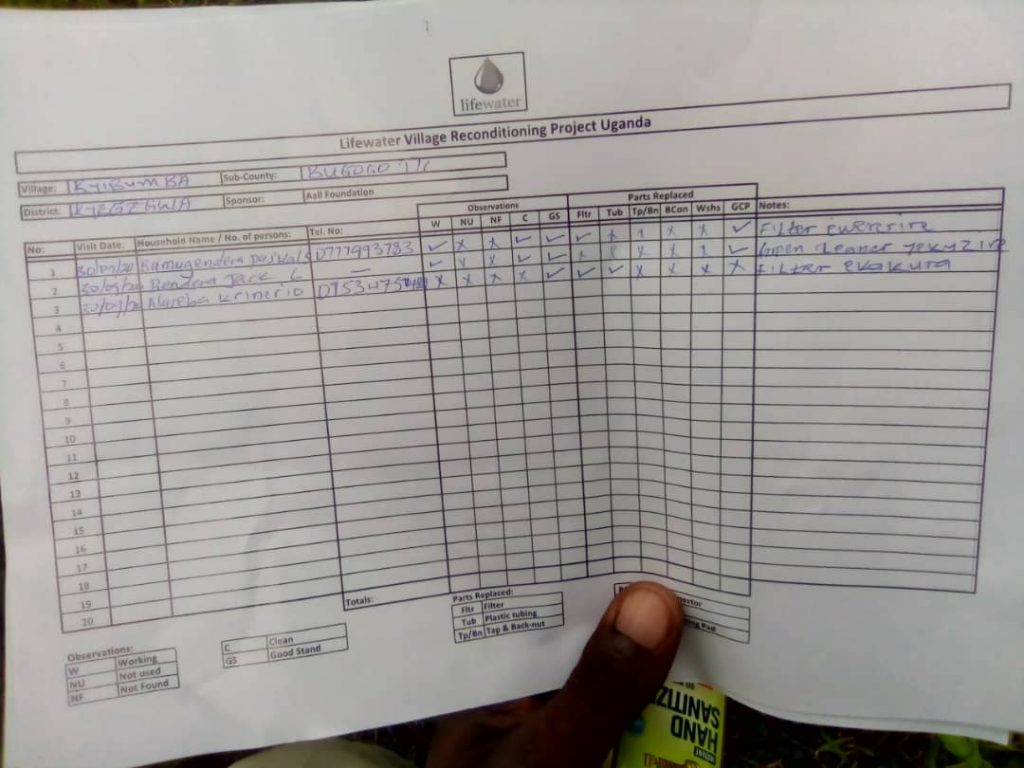 lifewater
Lifewater Village Reconditioning Project Uganda
Village: KYIBUMBA Sub-County: BUGOGO T/C
District: KYEGEGWA Sponsor: Aall Foundation
Observations Parts Replaced
No: Visit Date: Household Name / No. of persons: Tel. No: W NU NF C GS Fltr Tub Tp/Bn BCon Wshs GCP Notes:
1 30/09/20 0777993783 ✓ x x ✓ ✓ ✓ x x x x ✓ Filter
2 30/09/20 — ✓ x x ✓ ✓ x x x x ✓ Green cleaner
3 30/09/20 x x x x ✓ ✓ ✓ x x x x Filter ekakura
4
5
6
7
8
9
10
11
12
13
14
15
16
17
18
19
20
Totals:
Observations:
W Working
NU Not used
NF Not Found
C Clean
GS Good Stand
Parts Replaced:
Fltr Filter
Tub Plastic tubing
Tp/Bn Tap & Back-nut
Pad
HAND
SANITIZ